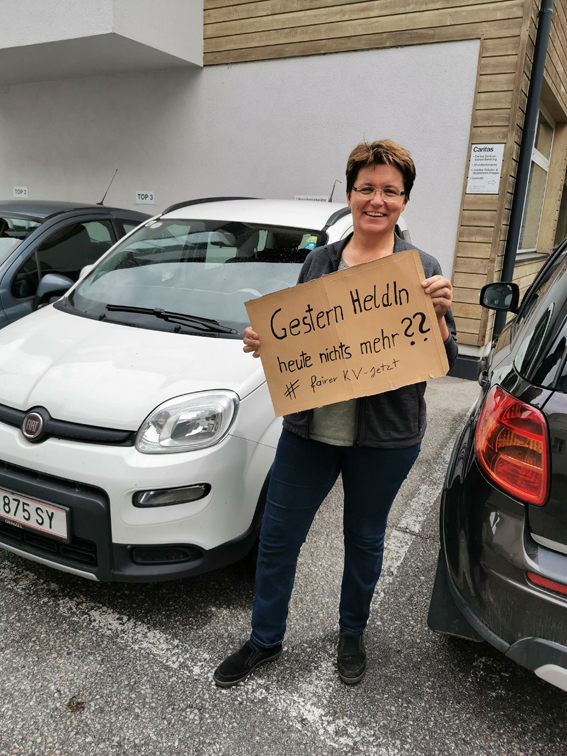 TOP 2
TOP 3
Caritas
Gestern HeldIn
heute nichts mehr??
# fairer KV-Jetzt
FIAT
875 SY